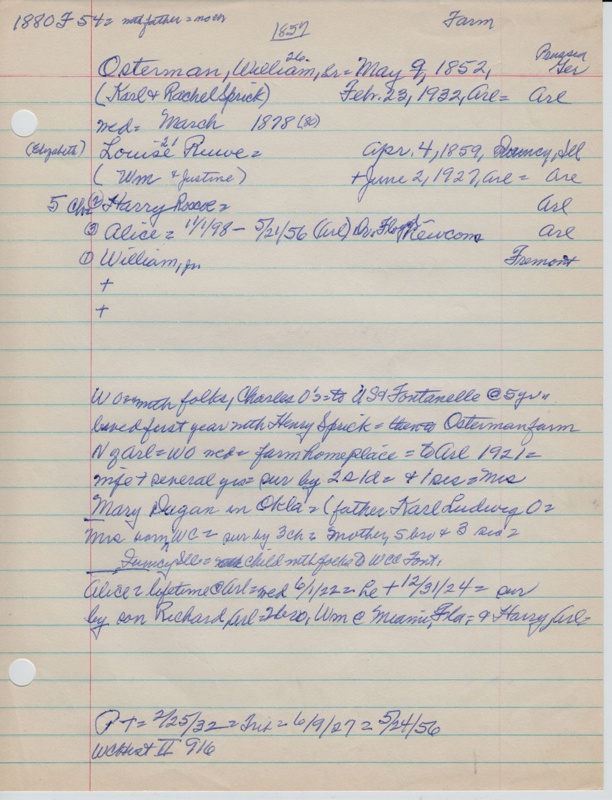 1880 F 54 = with father = no occ
1857
Farm
Osterman, William, Sr = May 9, 1852, Ger
26
(Karl & Rachel Sprick) Feb. 23, 1932, Arl = Arl
wed = March 1878 (80)
(Elizabeth) Louise Ruwe = Apr. 4, 1859, Quincy, Ill
21
(Wm & Justine) + June 2, 1927, Arl = Arl
5 Chn (2) Harry Roscoe = Arl
(3) Alice = 1/1/98 - 5/21/56 (Arl) Dr. Floyd Newcom Arl
(1) William, jr. Fremont
+
+
W O = with folks, Charles O's = to US & Fontanelle @ 5 yr =
lived first year with Henry Sprick = Osterman farm
N of Arl = WO wed = farm home place = to Arl 1921 =
wife + several yrs = sur by 2 s 1 d = & 1 sis = Mrs
Mary Dugan in Okla = (father Karl Ludwig O =
Mrs born WC = sur by 3 ch = mother, 5 bro & 3 sis =
Quincy Ill = child with folks to WCC Font.
Alice = lifetime @ Arl = wed 6/1/22 = he + 12/31/24 = sur
by son Richard, Arl = 2 bro, Wm @ Miami, Fla, = & Harry, Arl =
PT = 2/25/32 = Tri = 6/9/27 = 5/24/56
WCHist II 916